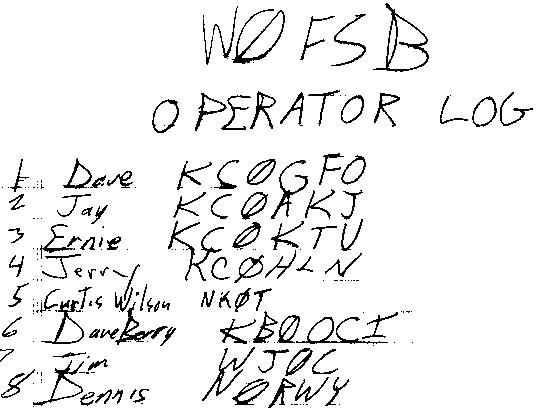 WØFSB
OPERATOR LOG
1 Dave KCØGFO
2 Jay KCØAKJ
3 Ernie KCØKTU
4 Jerry KCØHLN
5 Curtis Wilson NKØT
6 Dave Berry KBØOCI
7 Jim WJ0C
8 Dennis NØRWY